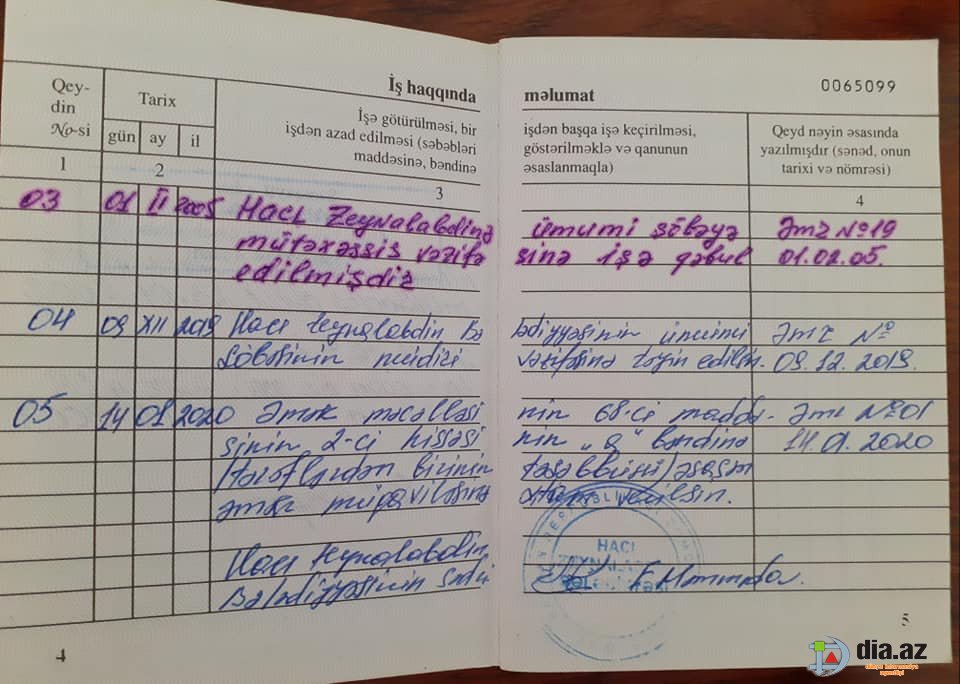 İş haqqında məlumat
0065099
Qey-
din
No-si
Tarix
gün ay il
İşə götürülməsi, bir
işdən azad edilməsi (səbəbləri
maddəsinə, bəndinə
işdən başqa işə keçirilməsi,
göstərilməklə və qanunun
əsaslanmaqla)
Qeyd nəyin əsasında
yazılmışdır (sənəd, onun
tarixi və nömrəsi)
1 2 3 4
03 01 II 2005 Hacı Zeynalabdinə ümumi şöbəyə Əmr №19
mütəxəssis vəzifə sinə işə qəbul 01.02.05.
edilmişdir
04 09 XII 2019 Hacı Zeynalabdin bə lədiyyəsinin ümumi Əmr №
şöbəsinin müdiri vəzifəsinə təyin edilsin. 09.12.2019.
05 14 01 2020 Əmək məcəlləsi nin 68-ci maddə- Əmr №01
sinin 2-ci hissəsi nin "a" bəndinə 14.01.2020
/tərəflərdən birinin təşəbbüsü/əsasən
əmək müqaviləsinə xitam verilsin.
Hacı Zeynalabdin
Bələdiyyəsinin sədri F.Məmmədov.
HACI
4
5
dia.az